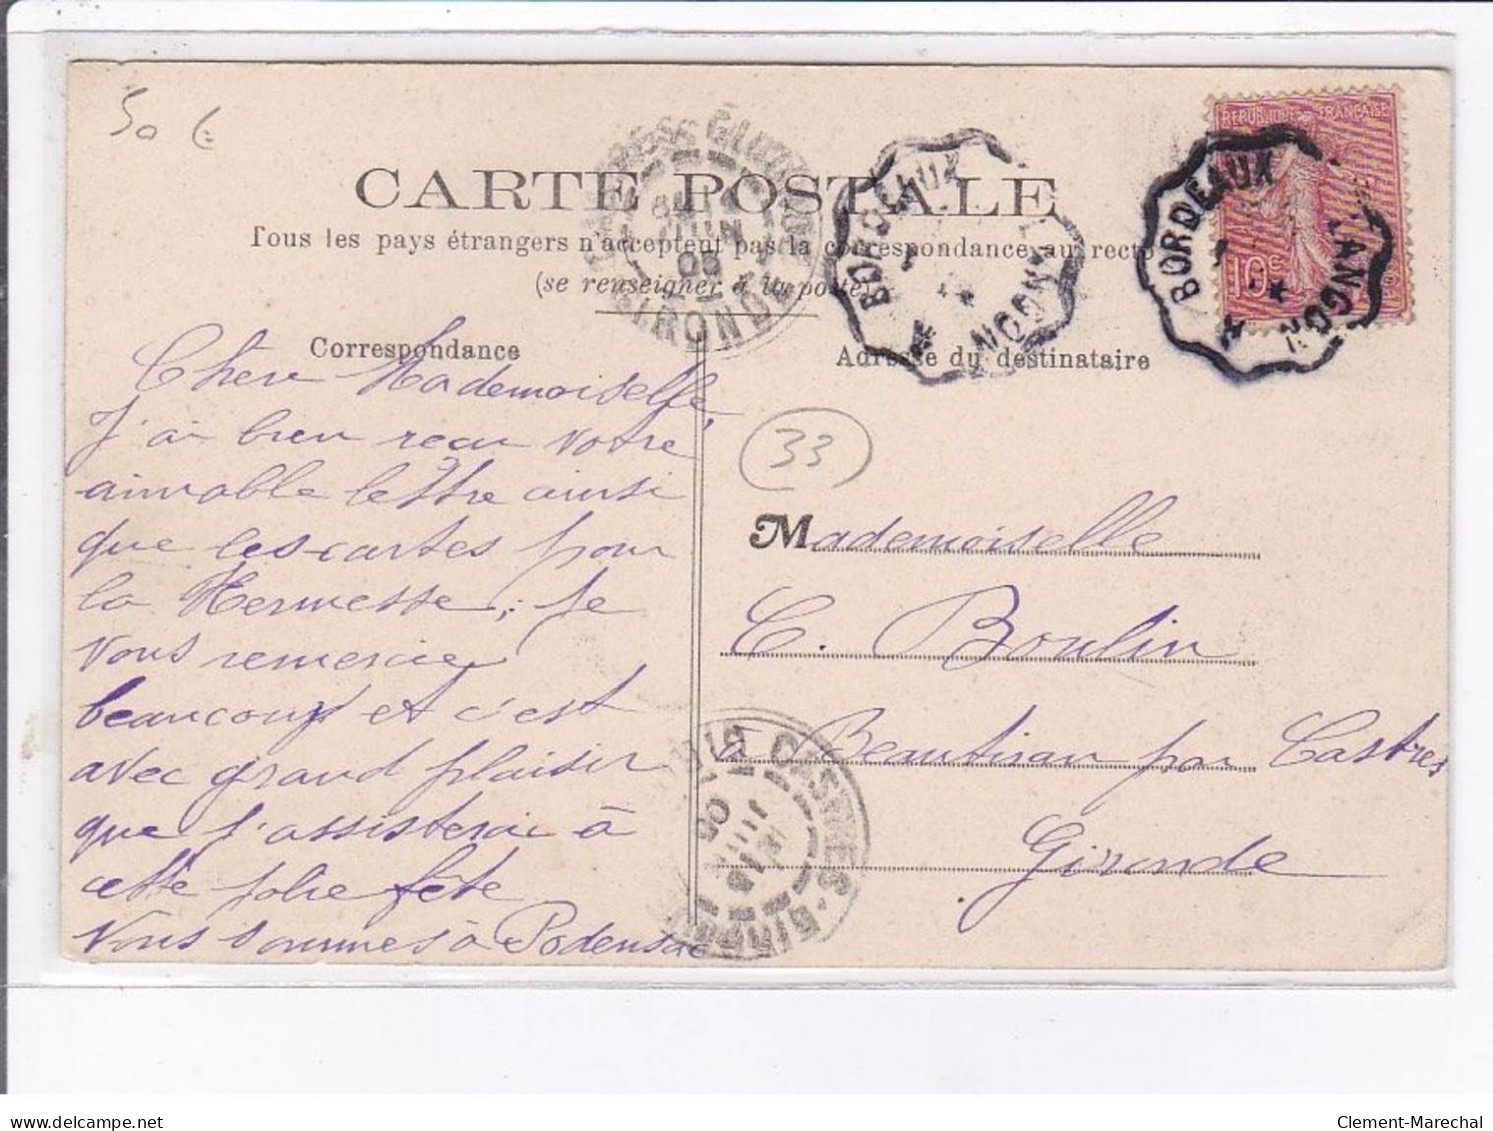 50 €
CARTE POSTALE
Tous les pays étrangers n'acceptent pas la correspondance au recto
(se renseigner à la poste)
Correspondance
Adresse du destinataire
REPUBLIQUE FRANÇAISE
10c
BORDEAUX
LANGON
BORDEAUX
LANGON
GIRONDE
JUIN
05
33
Chère Mademoiselle,
J'ai bien reçu votre
aimable lettre ainsi
que les cartes pour
la Kermesse; je
vous remercie
beaucoup et c'est
avec grand plaisir
que j'assisterai à
cette jolie fête
Vous sommes à Podensac
Mademoiselle
C. Boulin
à Beautiran par Castres
Gironde
CASTRES-GIRONDE
05
delcampe.net
Clement-Marechal